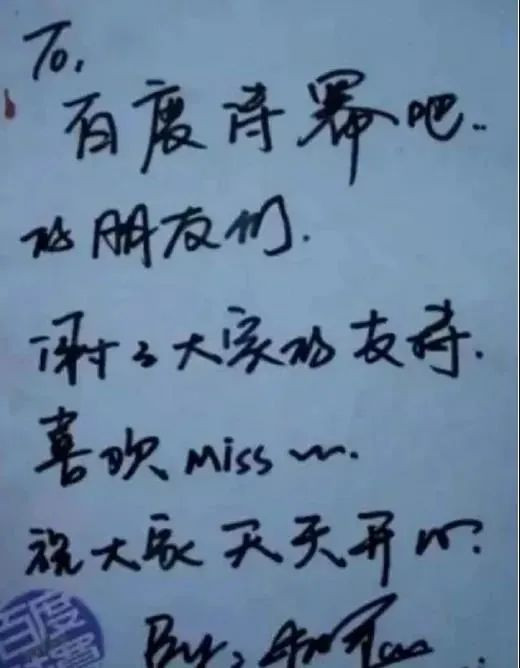 To,
百度诗幂吧..
的朋友们.
谢了大家的支持.
喜欢 miss~.
祝大家天天开心.
百度
By,